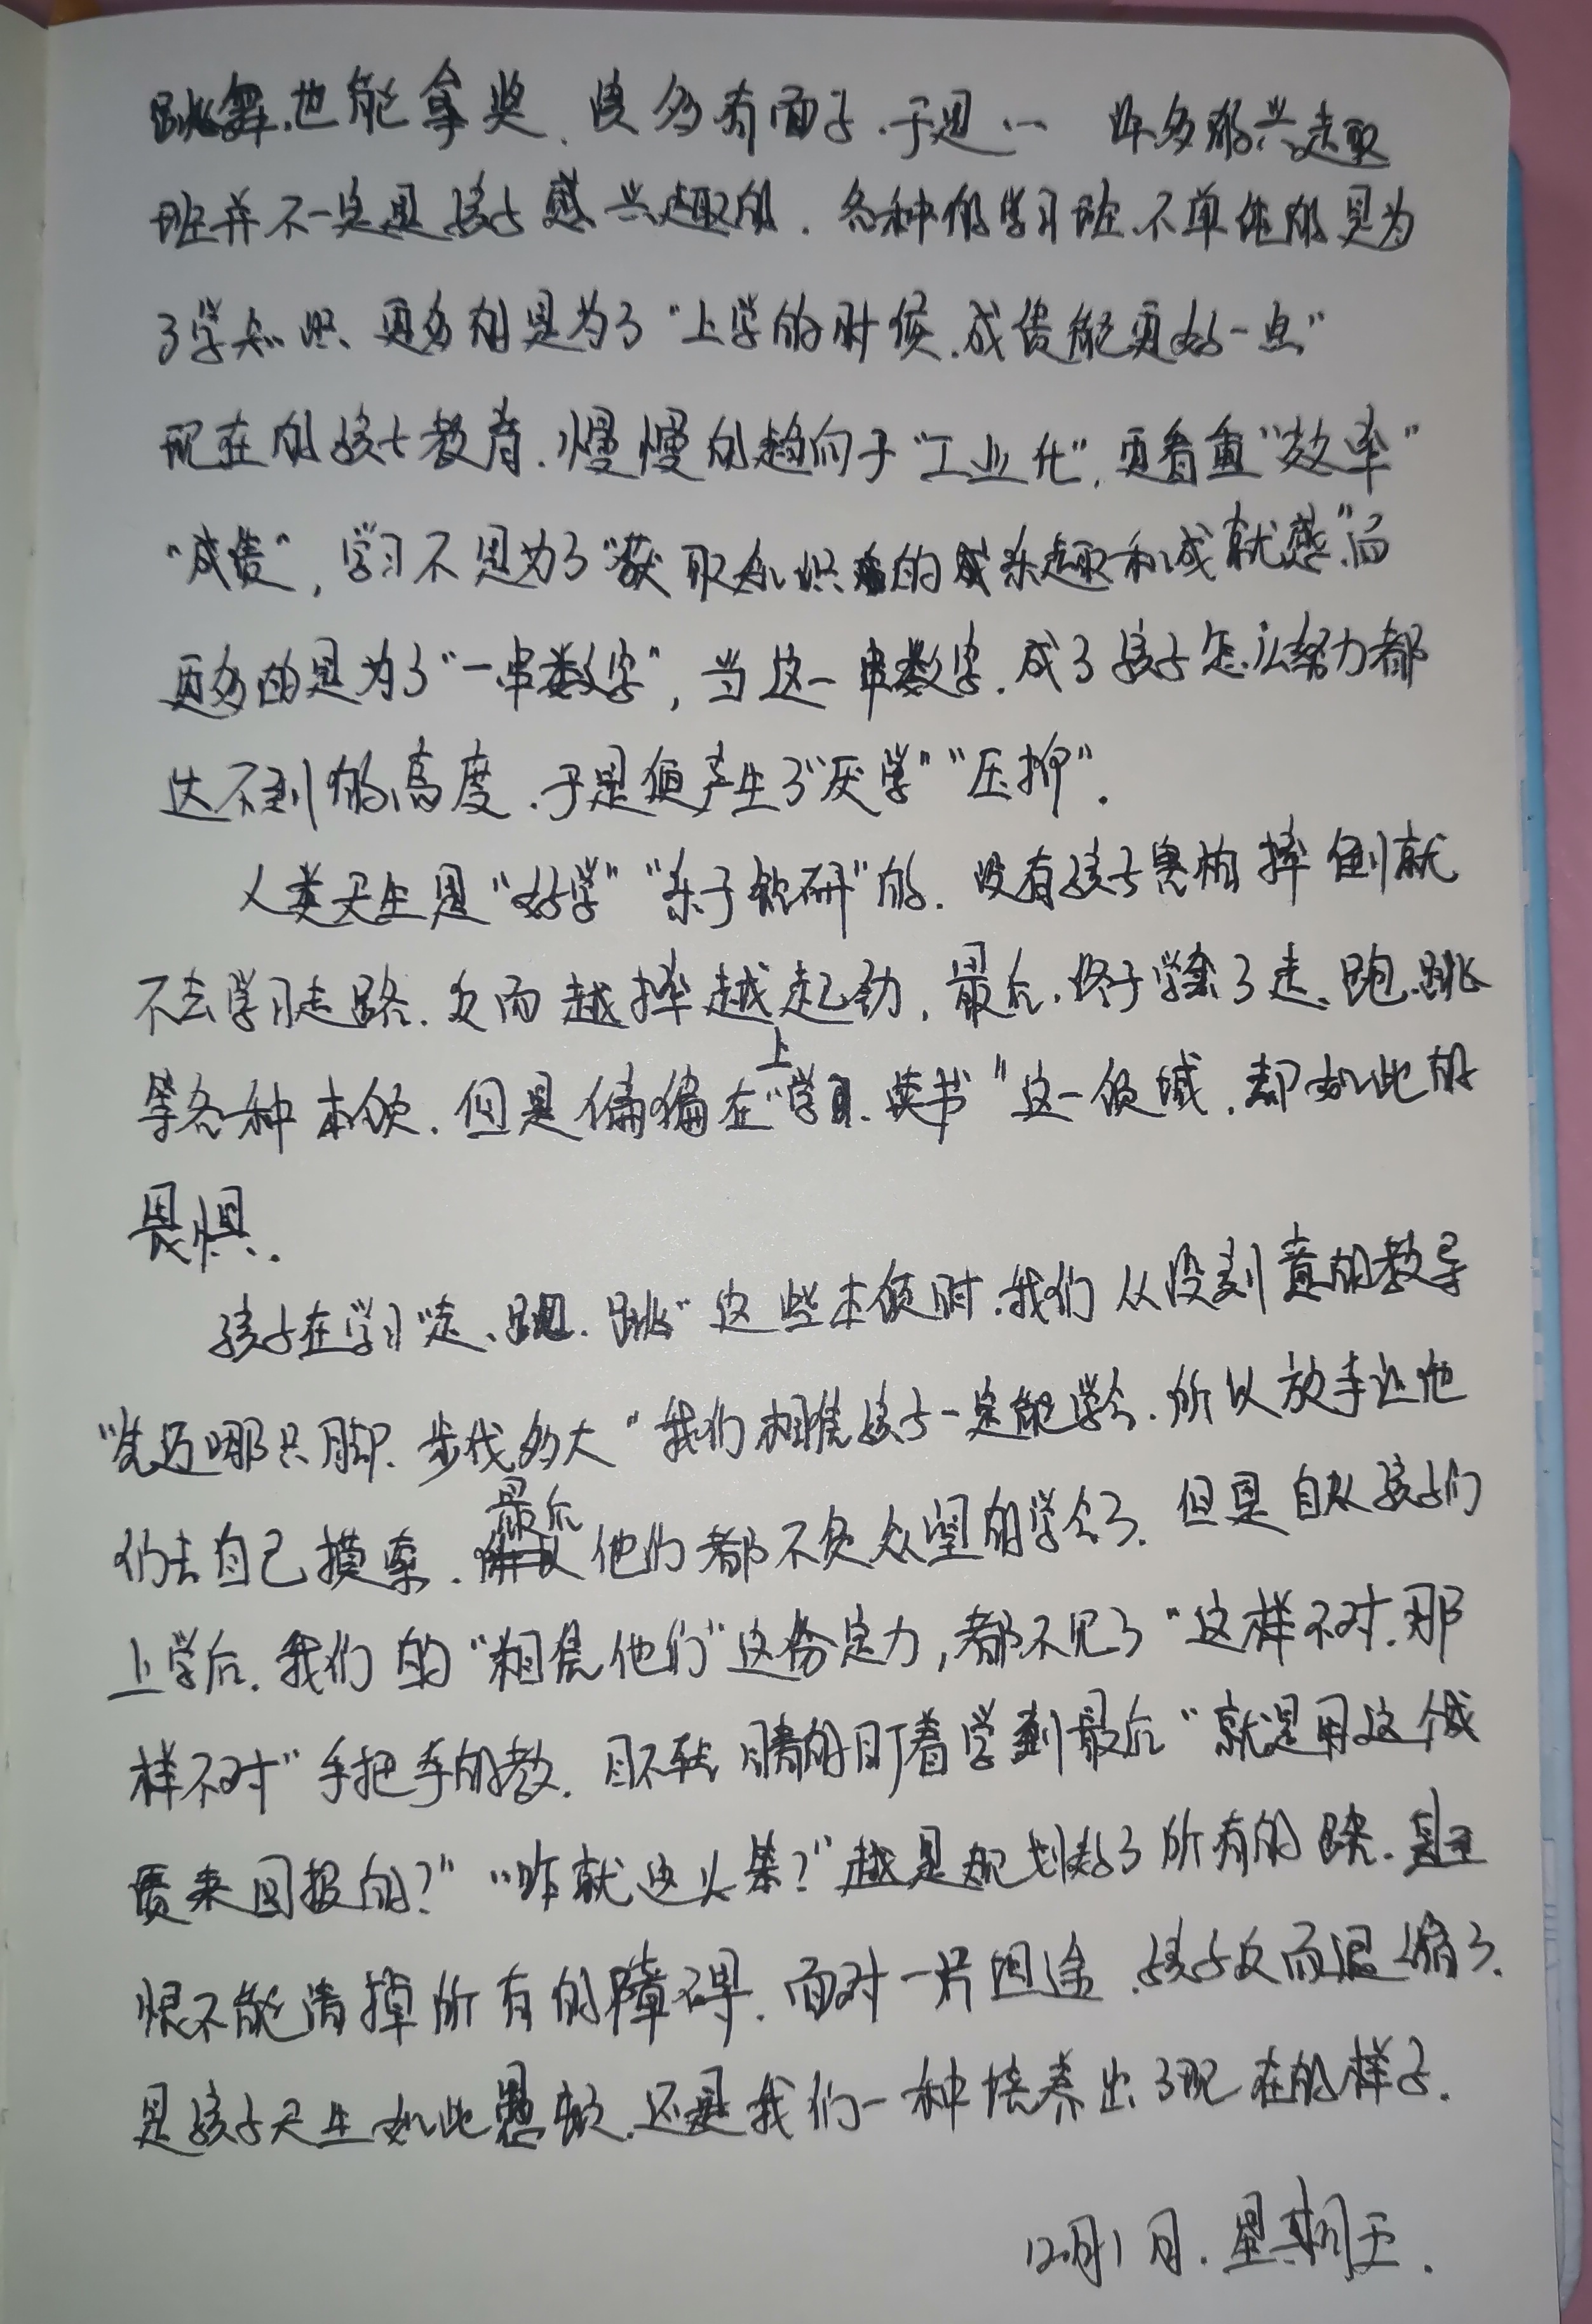 跳舞、也能拿奖、该多有面子、于是…… 许多的兴趣
班并不一定是孩子感兴趣的。各种的学习班、不单纯的是为
了学知识、更多的是为了“上学的时候、成绩能更好一点”
现在的孩子教育、慢慢的趋向于“工业化”，更看重“效率”
“成绩”，学习不是为了“获取知识的乐趣和成就感”而
更多的是为了“一串数字”，当这一串数字、成了孩子怎么努力都
达不到的高度、于是便产生了“厌学”“压抑”。
人类天生是“好学”“乐于钻研”的、没有孩子害怕摔倒就
不去学习走路、反而越摔越起劲，最后、终于学会了走、跑、跳
等各种本领、但是偏偏在“上学、读书”这一领域、却如此的
畏惧、
孩子在学习“走、跑、跳”这些本领时、我们从没刻意的教导
“先迈哪只脚、步伐多大”我们相信孩子一定能学会、所以放手让他
们去自己摸索、最后他们都不负众望的学会了、但是自从孩子们
上学后、我们的“相信他们”这份定力，都不见了“这样不对、那
样不对”手把手的教、目不转睛的盯着学到最后“就是用这个成
绩来回报的？”“咋就这么笨？”越是规划好了所有的路、
恨不能清掉所有的障碍、面对一片坦途、孩子反而退缩了、
是孩子天生如此愚钝、还是我们一种培养出了现在的样子、
12月1日、星期天、